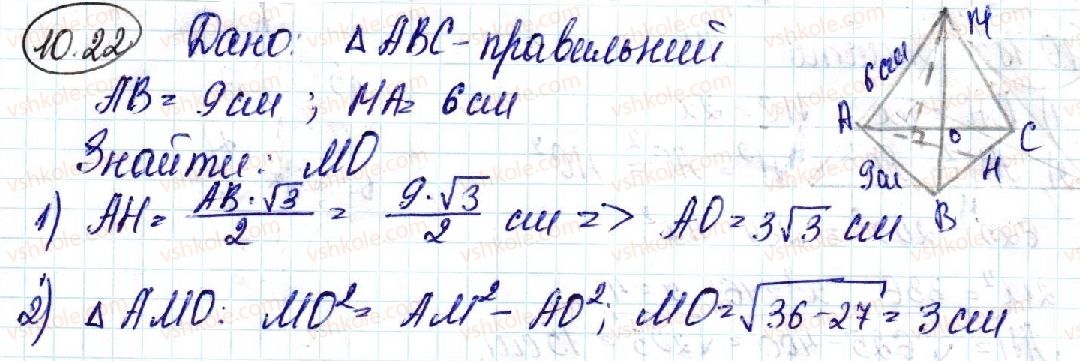 10.22 Дано: △ ABC - правильний
AB = 9 см ; MA = 6 см
Знайти: MO
1) AH = AB·√3/2 = 9·√3/2 см => AO = 3√3 см
2) △ AMO: MO² = AM² - AO²; MO = √36-27 = 3 см
M
6 см
A
O
C
9 см
H
B
vshkole.com